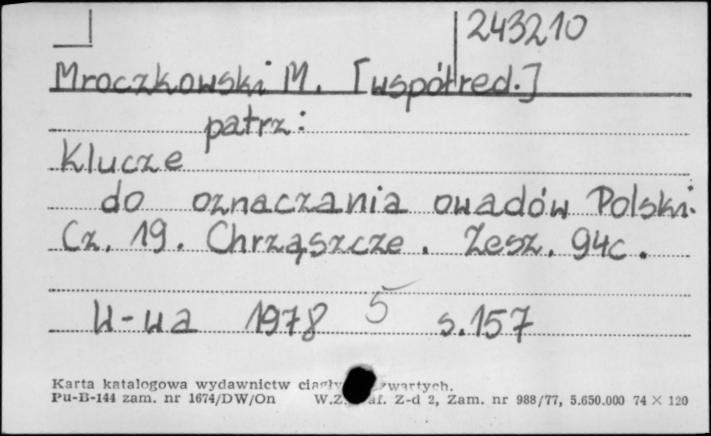 243210
Mroczkowski M. [współred.]
patrz:
Klucze
do oznaczania owadów Polski.
Cz. 19. Chrząszcze. Zesz. 94c.
W-wa 1978 5 s. 157
Karta katalogowa wydawnictw
Pu-B-144 zam. nr 1674/DW/On Z-d 2, Zam. nr 988/77, 5.650.000 74 × 120